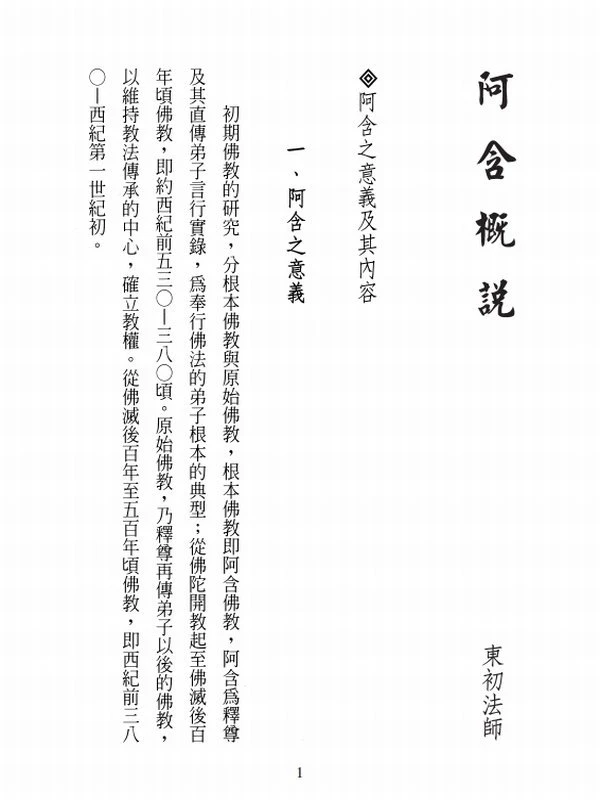 阿含概說
東初法師
阿含之意義及其內容
一、阿含之意義
初期佛教的研究，分根本佛教與原始佛教，根本佛教即阿含佛教，阿含爲釋尊
及其直傳弟子言行實錄，爲奉行佛法的弟子根本的典型；從佛陀開教起至佛滅後百
年頃佛教，即約西紀前五三〇—三八〇頃。原始佛教，乃釋尊再傳弟子以後的佛教，
以維持教法傳承的中心，確立教權。從佛滅後百年至五百年頃佛教，即西紀前三八
〇—西紀第一世紀初。
1